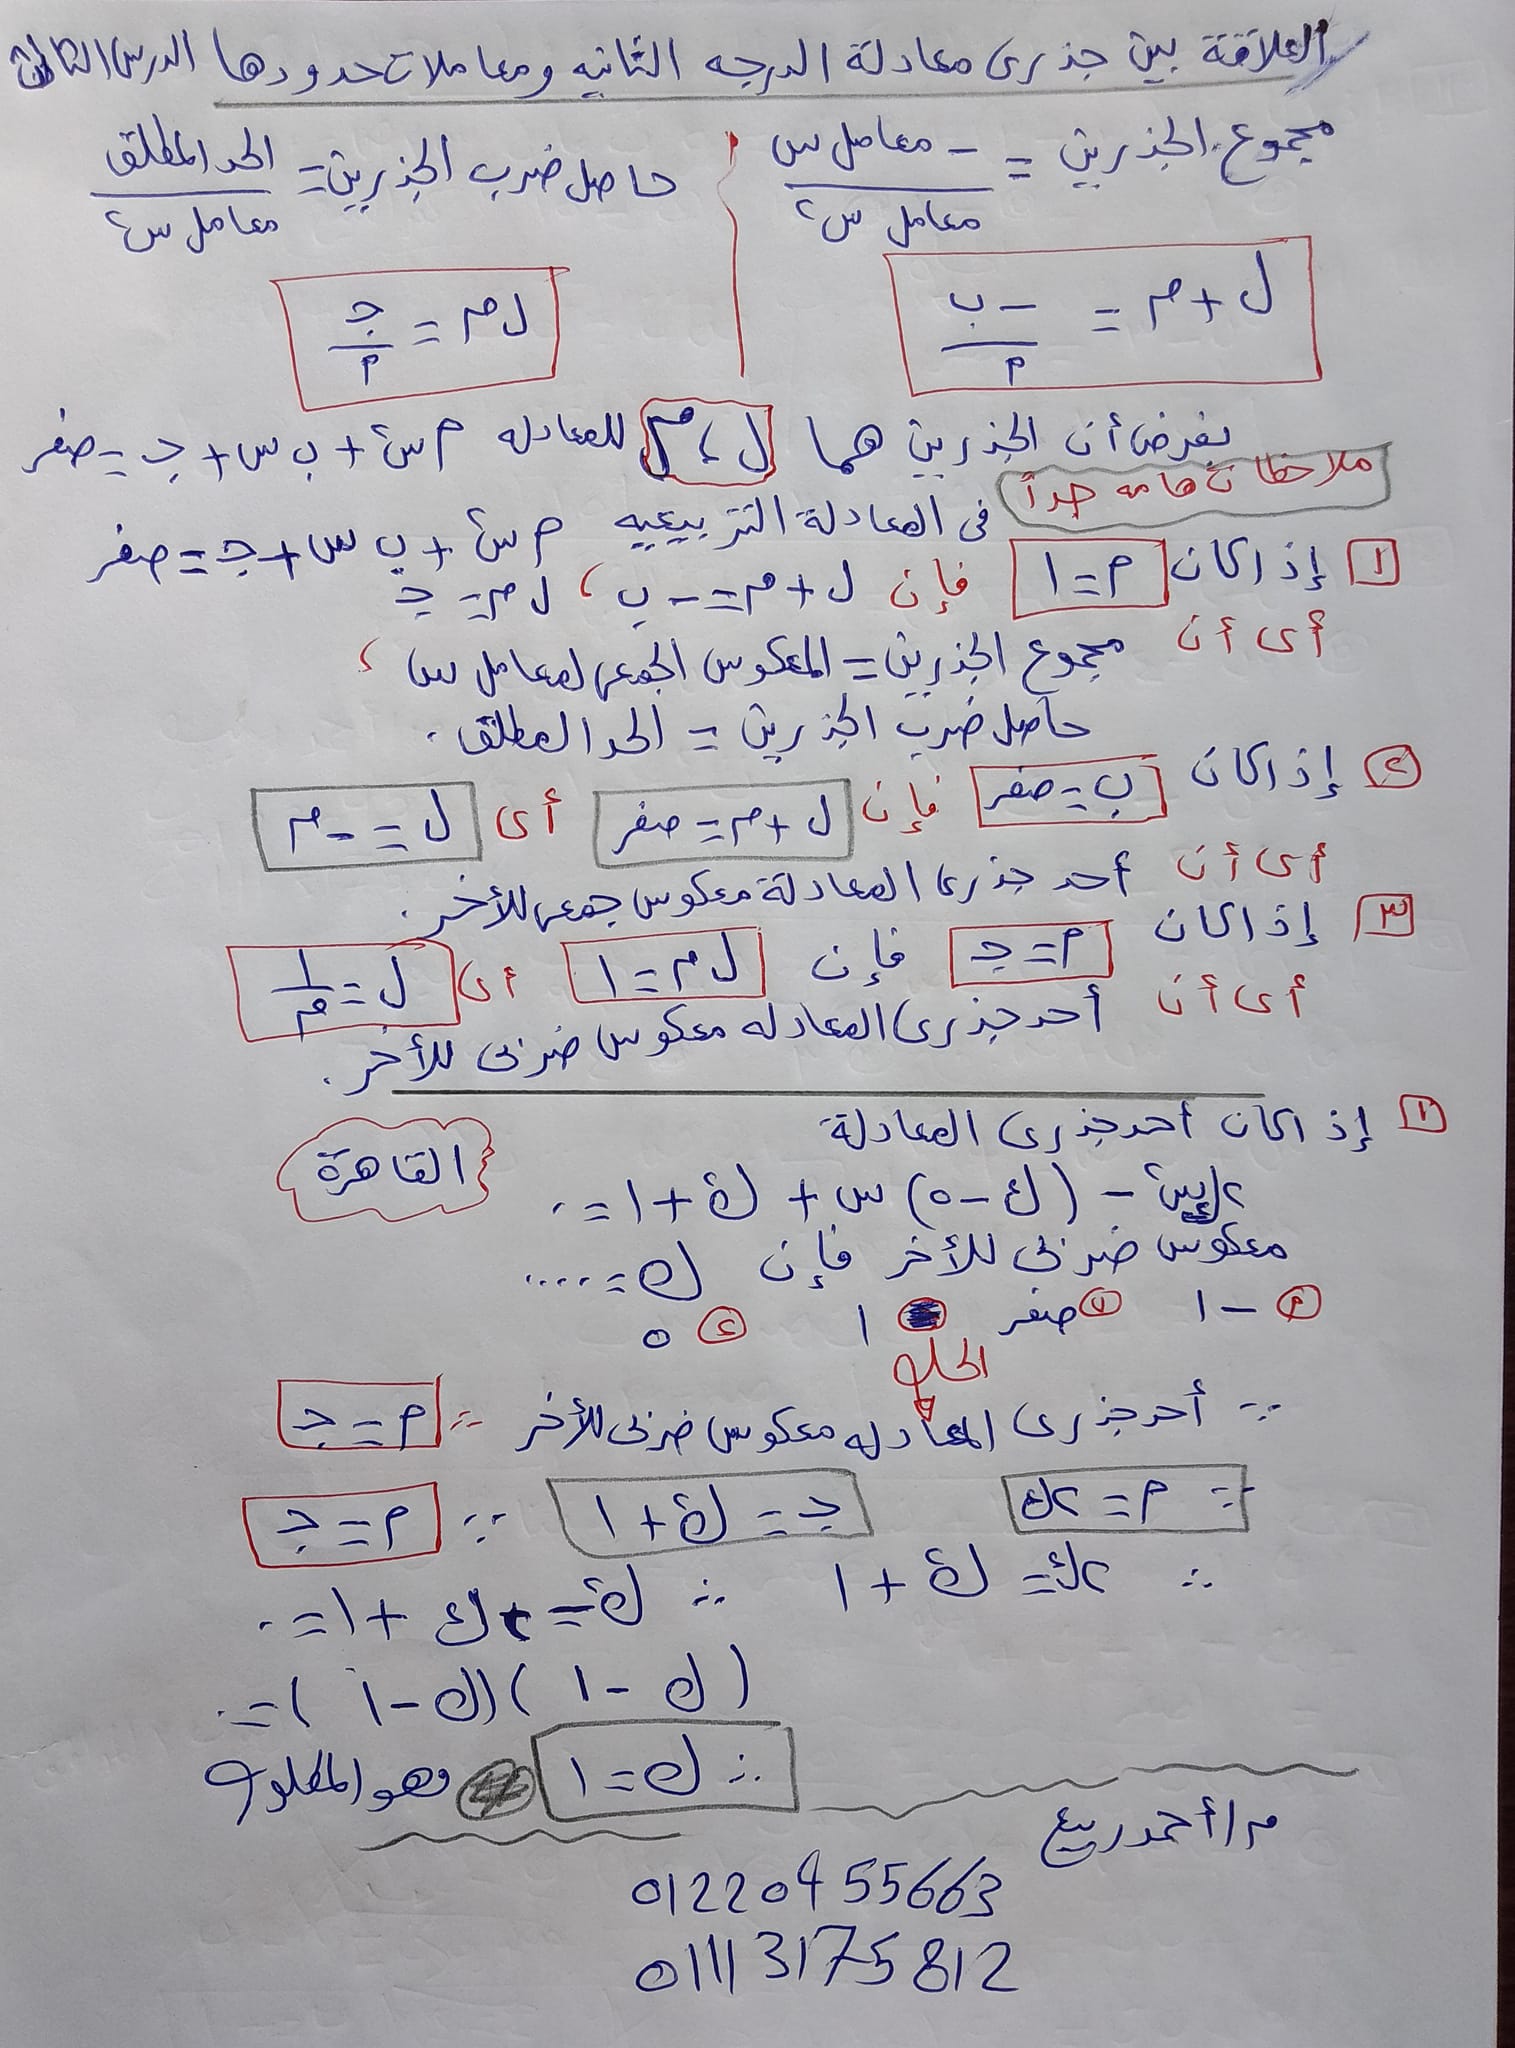 العلاقة بين جذرى معادلة الدرجه الثانيه ومعاملات حدودها الدرس الثالث
مجموع الجذرين = - معامل س / معامل س² حاصل ضرب الجذرين = الحد المطلق / معامل س²
ل + م = - ب / أ ل م = جـ / أ
بفرض أن الجذرين هما ل ، م للمعادله أ س² + ب س + جـ = صفر
ملاحظات هامه جداً فى المعادلة التربيعيه أ س² + ب س + جـ = صفر
١ إذا كان أ = ١ فإن ل + م = - ب ، ل م = جـ
أى أن مجموع الجذرين = المعكوس الجمعى لمعامل س ،
حاصل ضرب الجذرين = الحد المطلق .
٢ إذا كان ب = صفر فإن ل + م = صفر أى ل = - م
أى أن أحد جذرى المعادلة معكوس جمعى للأخر .
٣ إذا كان أ = جـ فإن ل م = ١ أى ل = ١ / م
أى أن أحد جذرى المعادله معكوس ضربى للأخر .
١ إذا كان أحد جذرى المعادلة
القاهرة
٢ك س² - (ك - ٥) س + ك² + ١ = ٠
معكوس ضربى للأخر فإن ك = ....
أ - ١ ب صفر ١ ء ٥
الحل
∵ أحد جذرى المعادله معكوس ضربى للأخر ∴ أ = جـ
∵ أ = ٢ك جـ = ك² + ١ ∵ أ = جـ
∴ ٢ك = ك² + ١ ∴ ك² - ٢ك + ١ = ٠
(ك - ١) (ك - ١) = ٠
∴ ك = ١ وهو المطلوب
م/ أحمد ربيع
01220455663
01113175812